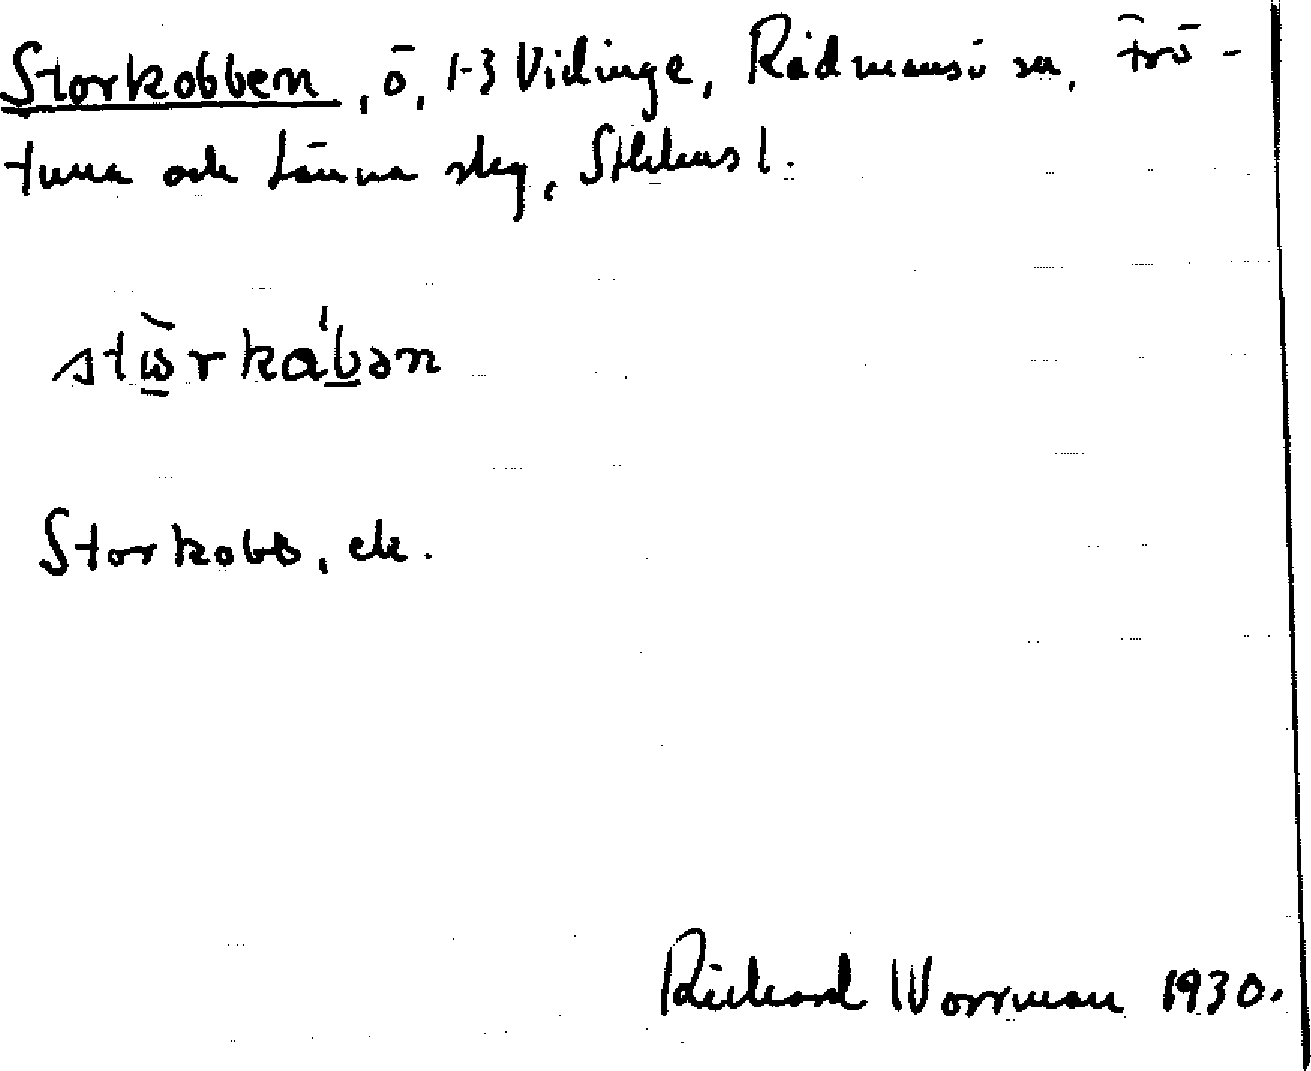 Storkobben, ö, 1-3 Vidinge, Rådmansö sn, Frö-
tuna och Länna skg, Sthlms l.
stωrkabən
Storkobb, ek.
Rickard Worrman 1930.